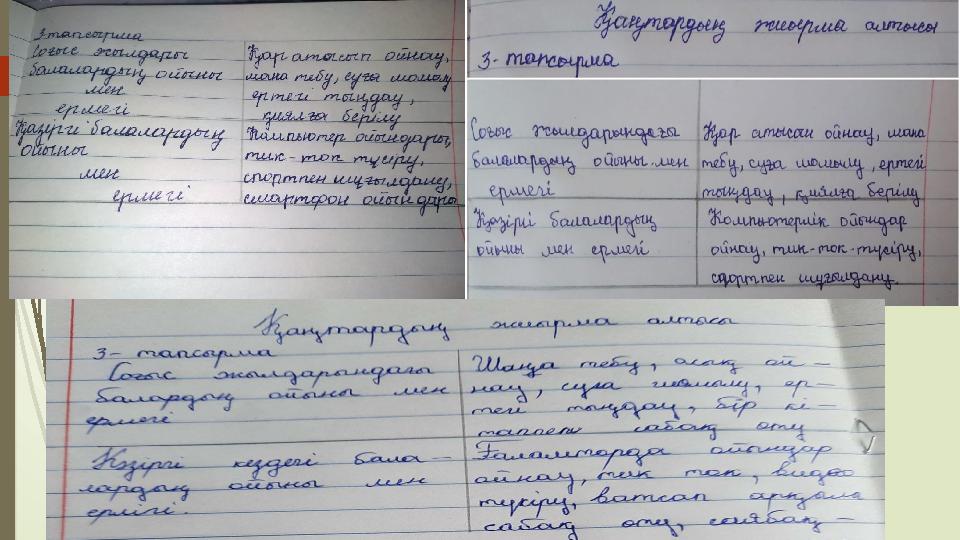 3 тапсырма
Соғыс жылдары
балалардың ойыны
мен
ермегі
Қар атысып ойнау,
шана тебу, суға шомылу
ертегі тыңдау,
қиялға берілу
Қазіргі балалардың
ойыны
мен
ермегі
Компьютер ойындары,
тик-ток түсіру,
спортпен шұғылдану,
смартфон ойындары
Қаңтардың жиырма алтысы
3- тапсырма
Соғыс жылдарындағы
балалардың ойыны мен
ермегі
Қар атысып ойнау, шана
тебу, суға шомылу, ертегі
тыңдау, қиялға берілу
Қазіргі балалардың
ойыны мен ермегі
Компьютерлік ойындар
ойнау, тик-ток-түсіру,
спортпен шұғылдану.
Қаңтардың жиырма алтысы
3- тапсырма
Соғыс жылдарындағы
балардың ойыны мен
ермегі
Шаңға тебу, асық ой-
нау, суға шомылу, ер-
тегі тыңдау, бір кі-
таппен сабақ оқу
Қәзіргі кездегі бала-
лардың ойыны мен
ермегі.
Ғаламторда ойындар
ойнау, тик ток, видео
түсіру, ватсап арқыла
сабақ оқу, саябақ-